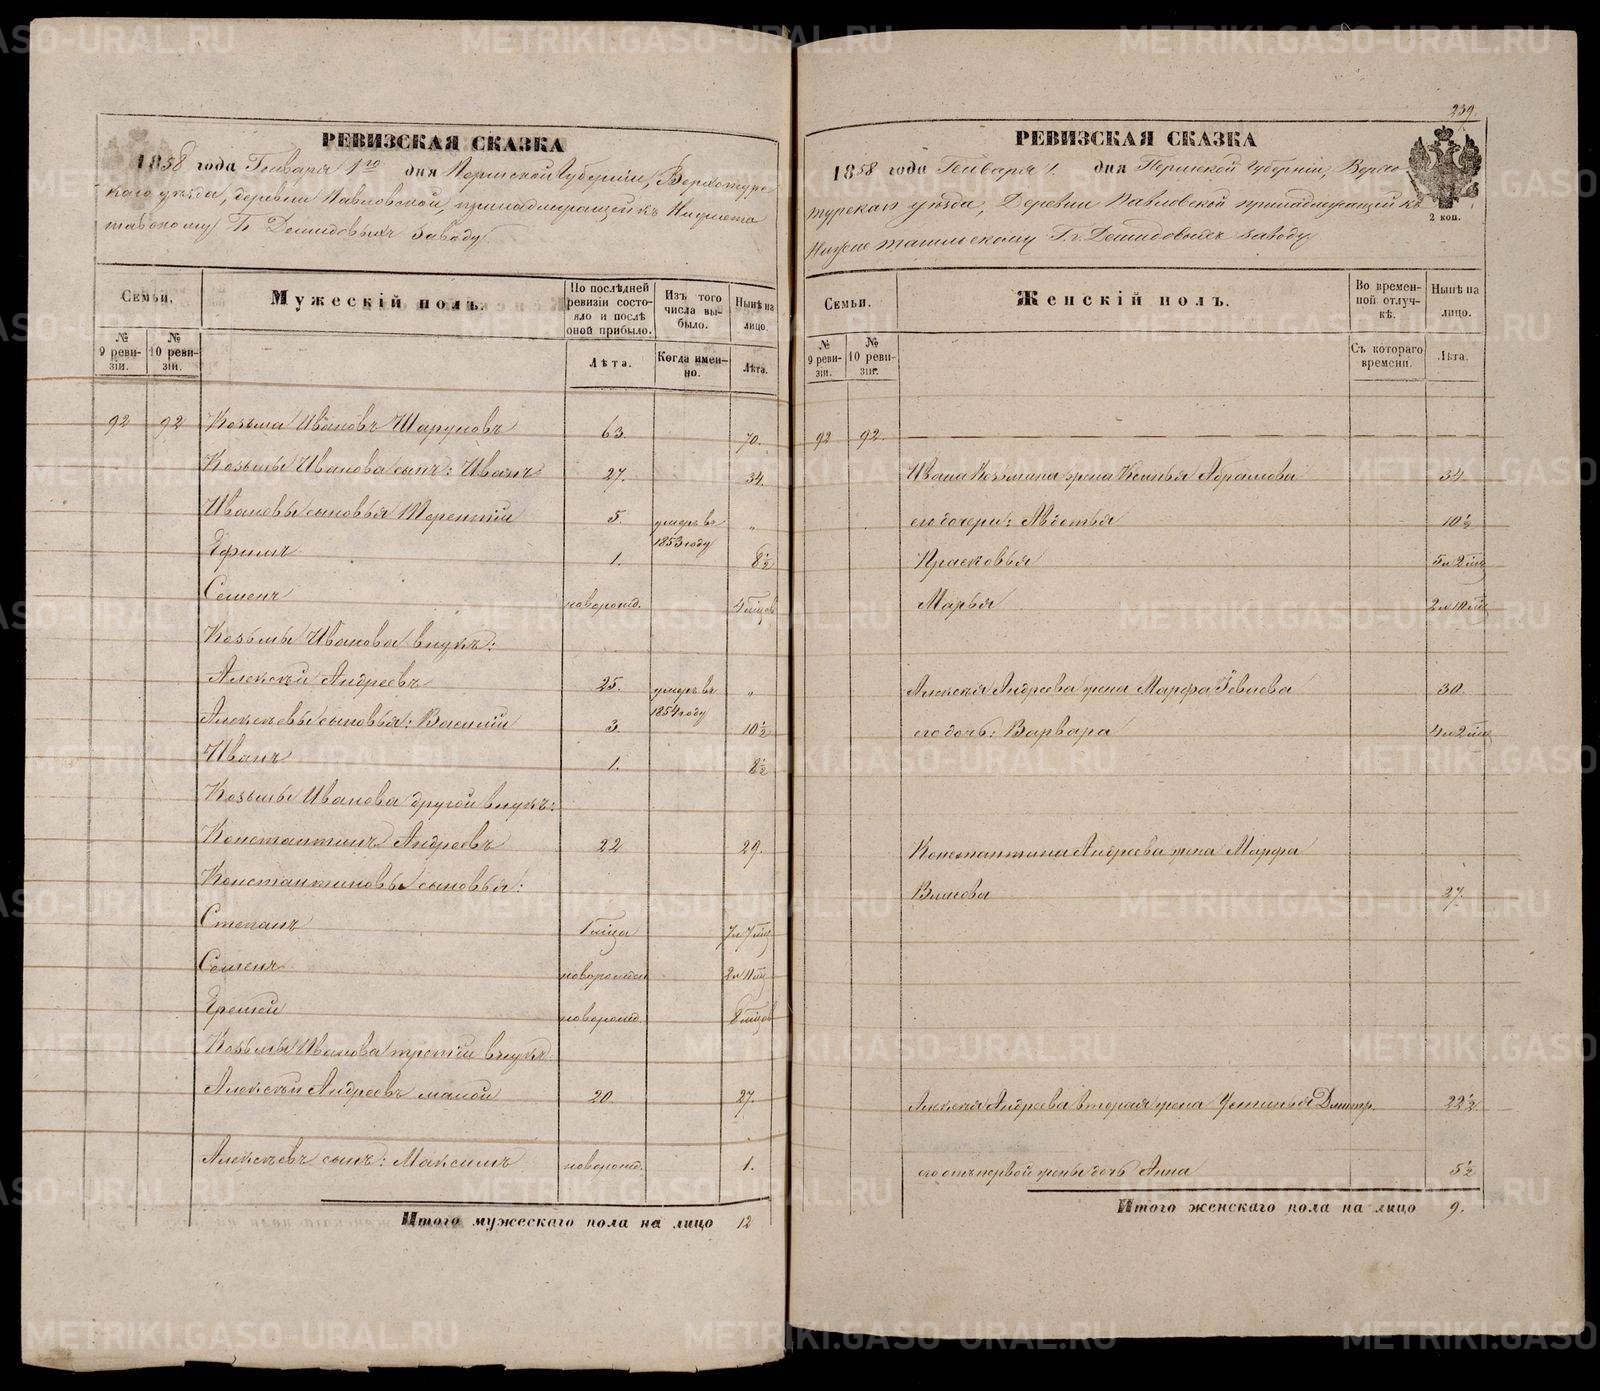 239.
РЕВИЗСКАЯ СКАЗКА
1858 года Генваря 1го дня Пермской Губернии, Верхотурс
каго уезда, деревни Павловской, принадлежащей къ Нижнета
гильскому Гг Демидовыхъ заводу
Семьи.
Мужескій полъ.
По послѣдней ревизіи состояло и послѣ оной прибыло.
Изъ того числа выбыло.
Нынѣ на лицо.
№ 9 ревизіи.
№ 10 ревизіи.
Лѣта.
Когда именно.
Лѣта.
92 92 Козьма Ивановъ Шаруновъ 63. 70.
Козьмы Иванова сынъ: Иванъ 27. 34.
Ивановы сыновья Терентій 5. умеръ въ 1853 году "
Ефимъ 1. 8½
Семенъ новорожд. 4 мѣцов
Козьмы Иванова внукъ:
Алексѣй Андреевъ 25. умеръ въ 1854 году "
Алексѣевы сыновья: Василій 3. 10½
Иванъ 1. 8½
Козьмы Иванова другой внукъ:
Константинъ Андреевъ 22 29.
Константиновы сыновья:
Степанъ 1 мѣца 7 л 7 мѣц
Семенъ новорожден 2 л 11 мѣц
Еремей новорожд. 8 мѣцов
Козьмы Иванова третій внукъ
Алексѣй Андреевъ малой 20. 27.
Алексѣевъ сынъ: Максимъ новорожд. 1.
Итого мужескаго пола на лицо 12
РЕВИЗСКАЯ СКАЗКА
2 коп.
1858 года Генваря 1. дня Пермской Губерніи, Верхо
турскаго уезда, Деревни Павловской принадлежащей къ
Нижнетагильскому Г.г. Демидовыхъ заводу
Семьи.
Женскій полъ.
Во временной отлучкѣ.
Нынѣ на лицо.
№ 9 ревизіи.
№ 10 ревизіи.
Съ котораго времени.
Лѣта.
92 92.
Ивана Козьмина жена Ксенья Абрамова 34.
его дочери: Авдотья 10½
Прасковья 5 л 2 мѣц
Марья 2 л 10 мѣц
Алексѣя Андреева жена Марфа 30.
его дочь: Варвара 4 л 2 мѣц
Константина Андреева жена Марфа
Власова 27.
Алексѣя Андреева вторая жена Устинья Дмитр. 22½
его отъ первой жены дочь Анна 5½
Итого женскаго пола на лицо 9.